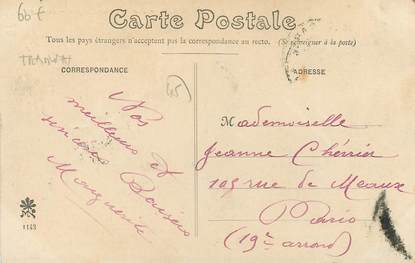 60 €
Carte Postale
Tous les pays étrangers n'acceptent pas la correspondance au recto. (Se renseigner à la poste)
CORRESPONDANCE
ADRESSE
45
Nos
meilleurs et
sincères Baisers
Marguerite
Mademoiselle
Jeanne Chérrier
105 rue de Meaux
Paris
(19e arrond)
1143